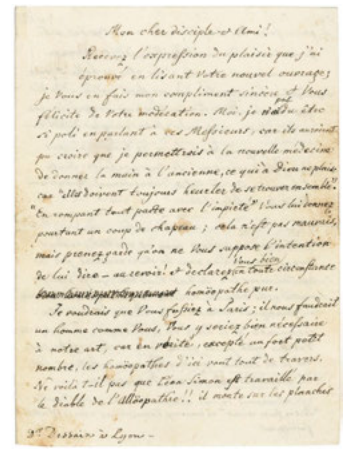 Mon cher disciple & Ami!
Recevez l'expression du plaisir que j'ai
éprouvé en lisant votre nouvel ouvrage;
je vous en fais mon compliment sincère & vous
félicite de votre modération. Moi, je n'ai pu être
si poli en parlant à ces Messieurs, car ils auraient
pu croire que je permettrais à la nouvelle médecine
de donner la main à l'ancienne, ce qu'à Dieu ne plaise,
car "elles doivent toujours heurler de se trouver ensemble".
"En rompant tout pacte avec l'impiété" vous lui donnez
pourtant un coup de chapeau; cela n'est pas mauvais,
mais prenez garde qu'on ne vous suppose l'intention
de lui dire – au revoir! & declarez vous bien en toute circonstance
homöopathe pur.
Je voudrais que vous fussiez à Paris; il nous faudrait
un homme comme vous, vous y seriez bien nécessaire
à notre art, car en vérité, excepté un fort petit
nombre, les homöopathes d'ici vont tout de travers.
Ne voilà t-il pas que Léon Simon est travaillé par
le diable de l'Allöopathie!! il monte sur les planches
Dr. Dessaix à Lyon –